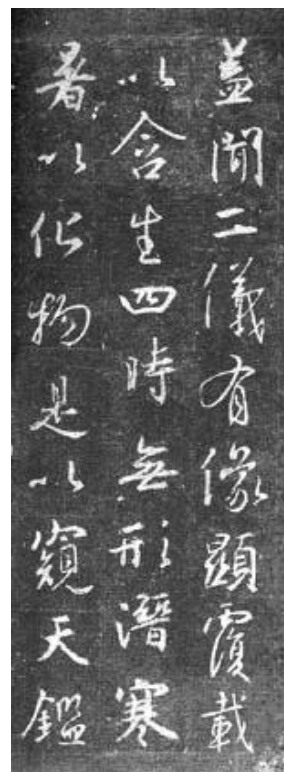 盖闻二儀有像顯覆載
以含生四時無形潛寒
暑以化物是以窺天鑑